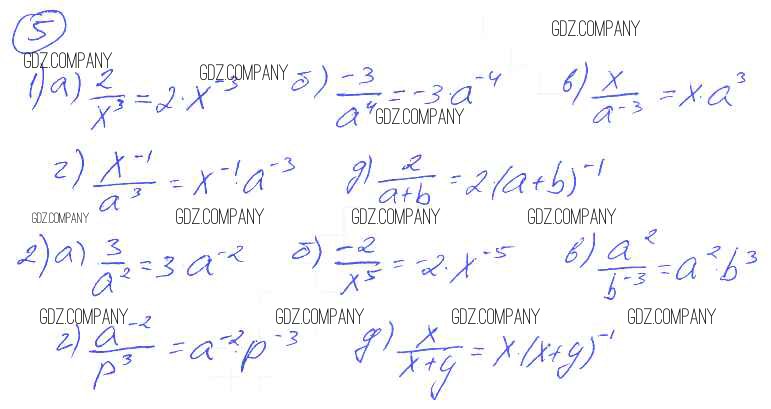 5
GDZ.COMPANY
GDZ.COMPANY GDZ.COMPANY
1) а) 2/x³ = 2·x⁻³ б) -3/a⁴ = -3·a⁻⁴ в) x/a⁻³ = x·a³
GDZ.COMPANY
г) x⁻¹/a³ = x⁻¹·a⁻³ д) 2/(a+b) = 2·(a+b)⁻¹
GDZ.COMPANY GDZ.COMPANY GDZ.COMPANY GDZ.COMPANY
2) а) 3/a² = 3 a⁻² б) -2/x⁵ = -2·x⁻⁵ в) a²/b⁻³ = a²·b³
GDZ.COMPANY GDZ.COMPANY GDZ.COMPANY GDZ.COMPANY
г) a⁻²/p³ = a⁻²·p⁻³ д) x/(x+y) = x·(x+y)⁻¹